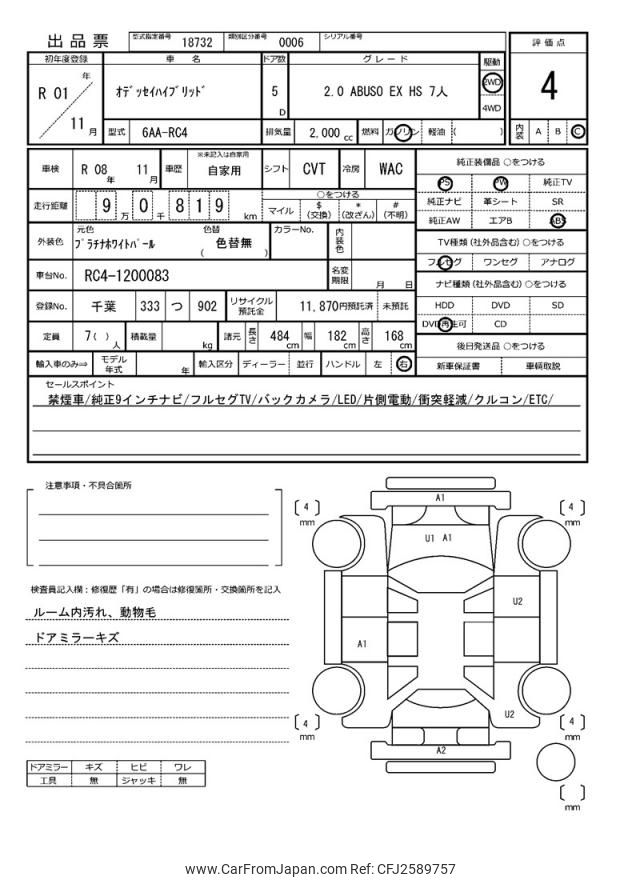 出品票 型式指定番号 18732 類別区分番号 0006 シリアル番号
初年度登録 車名 ドア数 グレード 駆動 評価点
R 01 年 11 月 ｵﾃﾞｯｾｲﾊｲﾌﾞﾘｯﾄﾞ 5 D 2.0 ABUSO EX HS 7人 2WD 4WD 4
型式 6AA-RC4 排気量 2,000 cc 燃料 ガソリン 軽油 ( ) 内装 A B C
車検 R 08 年 11 月 車歴 ※未記入は自家用 自家用 シフト CVT 冷房 WAC
純正装備品 ○をつける
PS PW 純正TV
純正ナビ 革シート SR
純正AW エアB ABS
走行距離 9 0 万 千 8 1 9 km ○をつける マイル $ (交換) * (改ざん) # (不明)
外装色 元色 ﾌﾟﾗﾁﾅﾎﾜｲﾄﾊﾟｰﾙ 色替 ( 色替無 ) カラーNo. 内装色
TV種類 (社外品含む) ○をつける
フルセグ ワンセグ アナログ
車台No. RC4-1200083 名変期限 月 日
ナビ種類 (社外品含む) ○をつける
HDD DVD SD
DVD再生可 CD
登録No. 千葉 333 つ 902 リサイクル預託金 11,870円預託済 未預託
定員 7 ( ) 人 積載量 kg 諸元 長さ 484 cm 幅 182 cm 高さ 168 cm
後日発送品 ○をつける
新車保証書 車輌取説
輸入車のみ⇒ モデル年式 年 輸入区分 ディーラー 並行 ハンドル 左 右
セールスポイント
禁煙車/純正9インチナビ/フルセグTV/バックカメラ/LED/片側電動/衝突軽減/クルコン/ETC/
注意事項・不具合箇所
検査員記入欄：修復歴「有」の場合は修復箇所・交換箇所を記入
ルーム内汚れ、動物毛
ドアミラーキズ
ドアミラー キズ ヒビ ワレ
工具 無 ジャッキ 無
A1
4 mm
4 mm
U1 A1
U2
A1
U2
4 mm
A2
4 mm
mm
www.CarFromJapan.com Ref: CFJ2589757